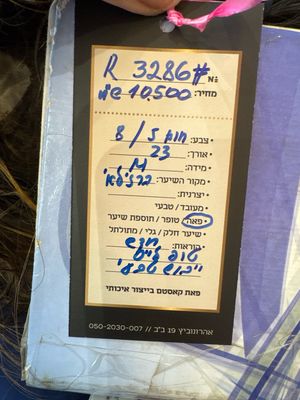 מ': R 3286#
מחיר: 10.500 ש"ח
• צבע: חום 5 / 8
• אורך: 23
• מידה: M
• מקור השיער: ברזילאי
• יצרנית:
• מעובד / טבעי
• פאה / טופר / תוספת שיער
• שיער חלק / גלי / מתולתל
• הוראות: חדש
טופ לייס
ייבוש טבעי
פאת קאסטם בייצור איכותי
אהרונוביץ 19 ב"ב // 050-2030-007